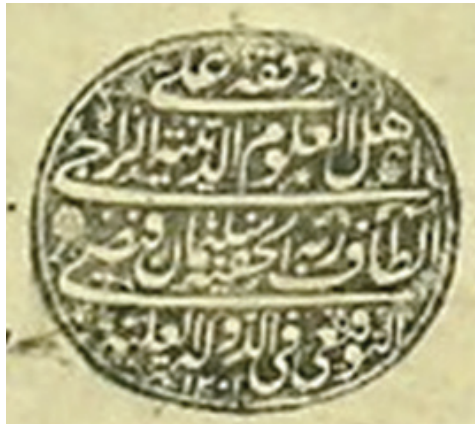 وقفه على
اهل العلوم الدينية الراجى
الطاف ربه الخفيه سليمان فيضى
التوقيعى فى الدولة العليه
١٢٠٢